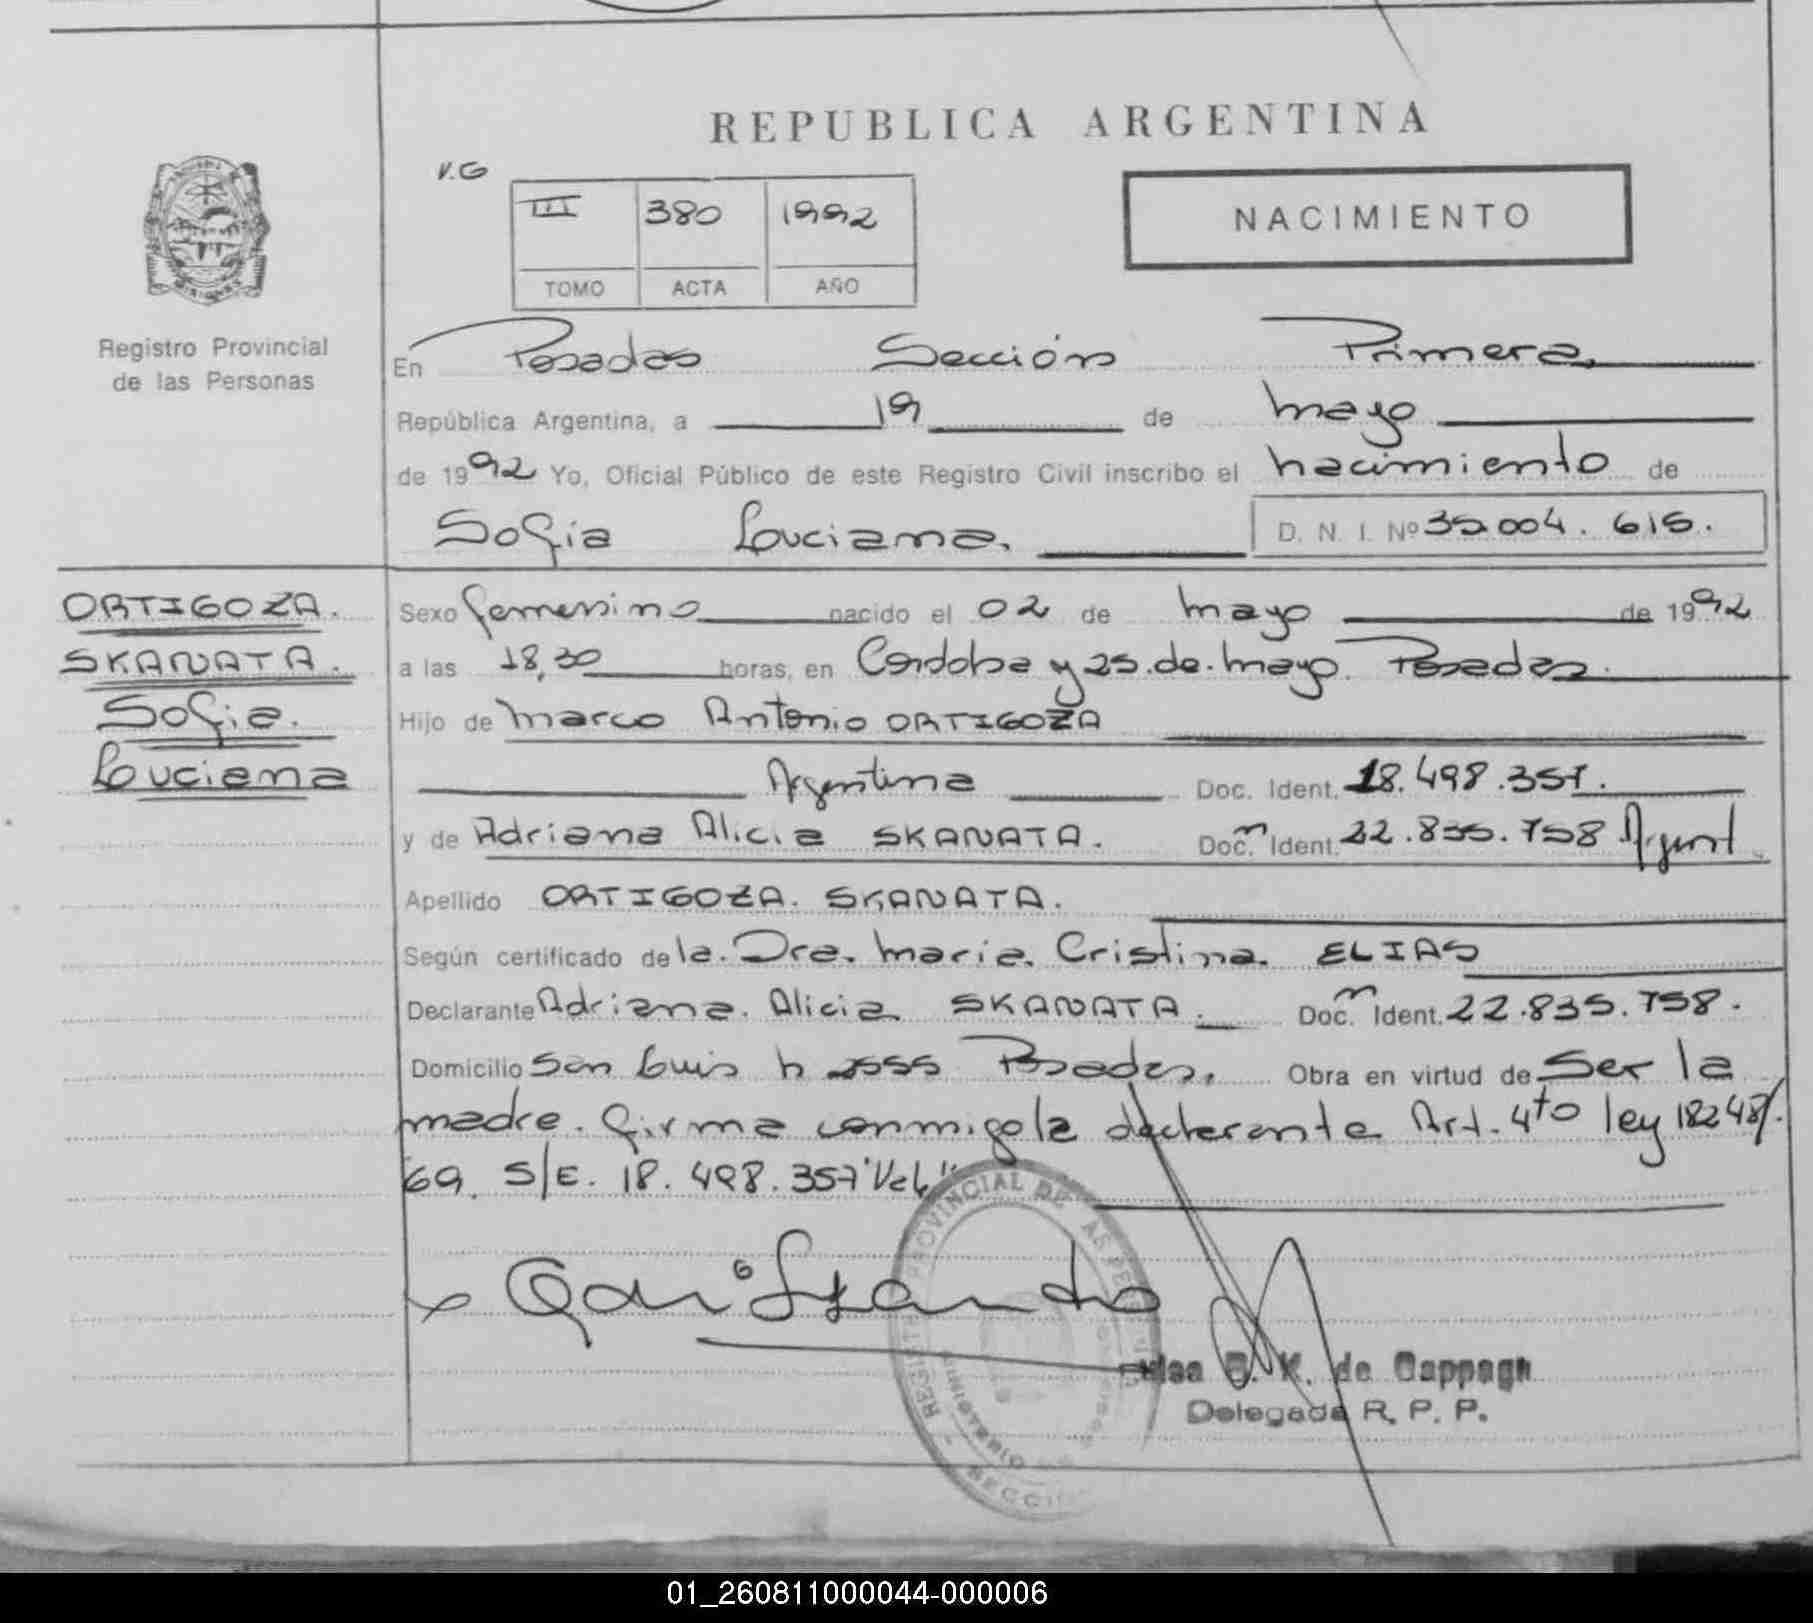 REPUBLICA ARGENTINA
V.G
III 380 1992
TOMO ACTA AÑO
NACIMIENTO
Registro Provincial
de las Personas
En Posadas Sección Primera
República Argentina, a 19 de mayo
de 1992 Yo, Oficial Público de este Registro Civil inscribo el nacimiento de
Sofia Louciana. D. N. I. Nº 35.004.615.
ORTIGOZA.
SKANATA.
Sofia.
Louciana
Sexo femenino nacido el 02 de mayo de 1992
a las 18,30 horas, en Cordoba y 25.de.mayo. Posadas.
Hijo de Marco Antonio ORTIGOZA
Argentina Doc. Ident. 18.498.357.
y de Adriana Alicia SKANATA. Doc. Ident. 22.835.758 Argent
Apellido ORTIGOZA. SKANATA.
Según certificado de la. Dra. Maria. Cristina. ELIAS
Declarante Adriana. Alicia SKANATA. Doc. Ident. 22.835.758.
Domicilio San Luis n 2555 Posadas. Obra en virtud de Ser la
madre. firma conmigo la declarante Art. 4to ley 18248/.
69. S/E. 18.498.357 "Vale"
REGISTRO PROVINCIAL DE LAS PERSONAS
SECCIO
de Cappagn
Delegada R. P. P.
01_260811000044-000006